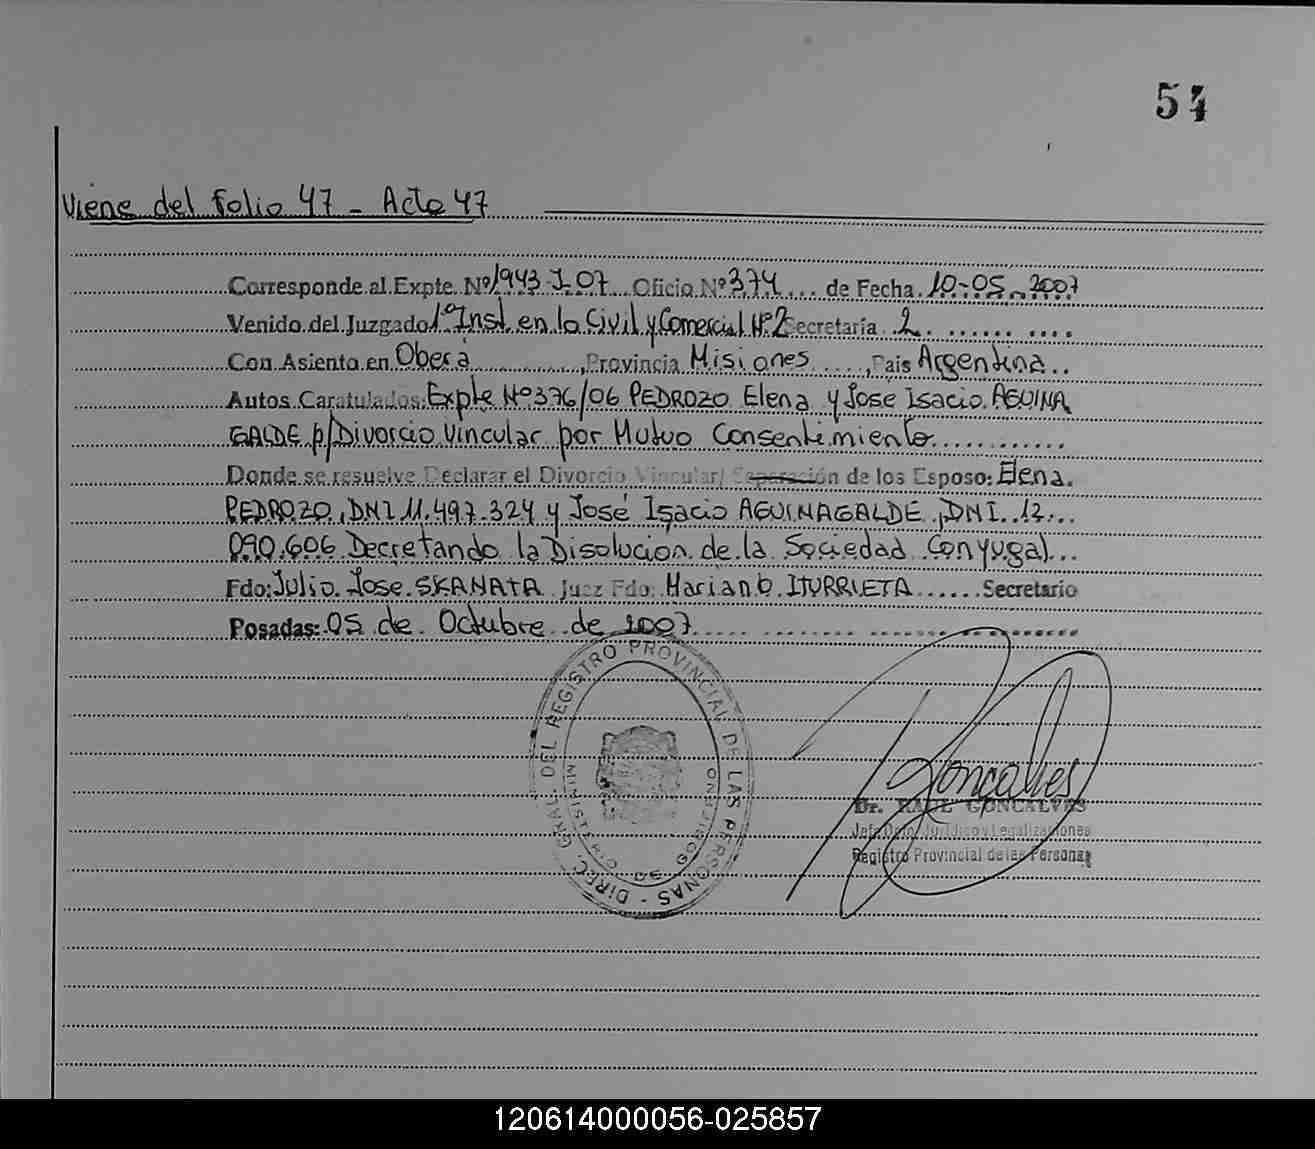 54
Viene del Folio 47 - Acta 47
Corresponde al Expte. Nº 1943-J-07 Oficio Nº 374 de Fecha 10-05-2007
Venido del Juzgado 1º Inst. en lo Civil y Comercial Nº 2 Secretaría 2
Con Asiento en Oberá, Provincia Misiones, País Argentina
Autos Caratulados: Expte Nº 376/06 PEDROZO Elena y José Isacio AGUINA
GALDE p/ Divorcio Vincular por Mutuo Consentimiento
Donde se resuelve Declarar el Divorcio Vincular/ Separación de los Esposo: Elena
PEDROZO, DNI 11.497.324 y José Isacio AGUINAGALDE, DNI. 12.
090.606 Decretando la Disolución de la Sociedad Conyugal
Fdo: Julio José SKANATA Juez Fdo: Mariano ITURRIETA Secretario
Posadas: 05 de Octubre de 2007
DIREC. GRAL. DEL REGISTRO PROVINCIAL DE LAS PERSONAS
MINISTERIO DE GOBIERNO
Goncalves
Dr. RAUL GONCALVES
Jefe Dpto. Jurídico y Legalizaciones
Registro Provincial de las Personas
120614000056-025857